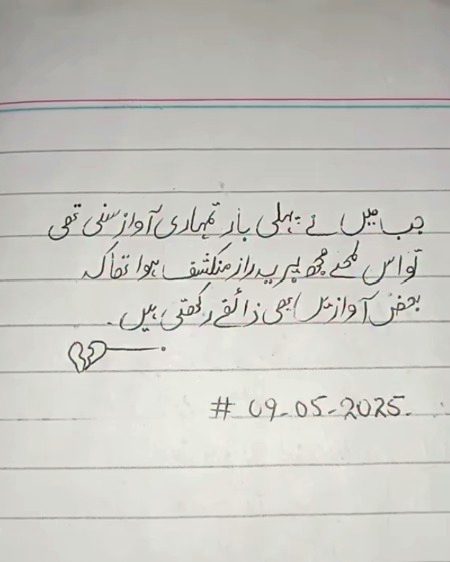 جب میں نے پہلی بار تمہاری آواز سنی تھی
تو اس لمحے مجھ پر یہ راز منکشف ہوا تھا کہ
بعض آوازیں بھی ذائقے رکھتی ہیں.
# 09-05-2025.